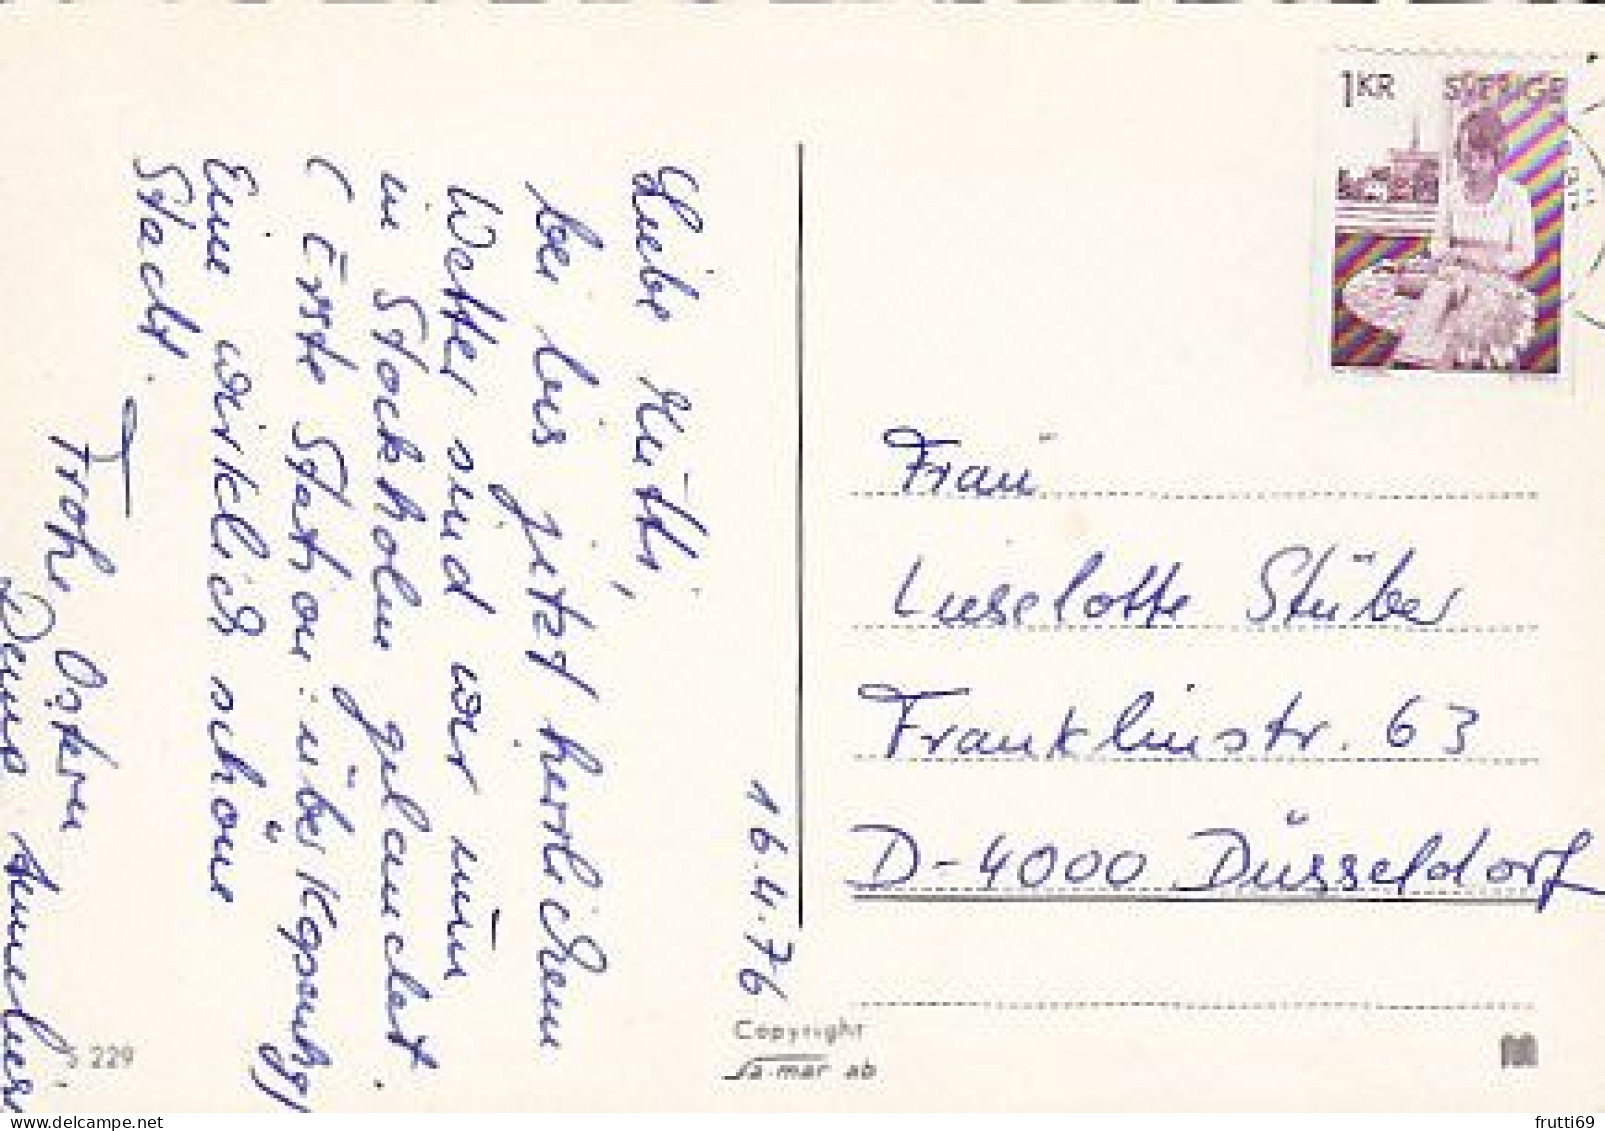 16.4.76
Liebe Mutti,
bei bis jetzt herrlichem
Wetter sind wir nun
in Stockholm gelandet.
(Erste Station: über Kopenhg)
Eine wirklich schöne
Stadt.
Frohe Ostern
Deine Annelies
1KR SVERIGE
Frau
Lieselotte Stüber
Franklinstr. 63
D-4000 Düsseldorf
S 229
Copyright
Sa-mar ab
frutti69